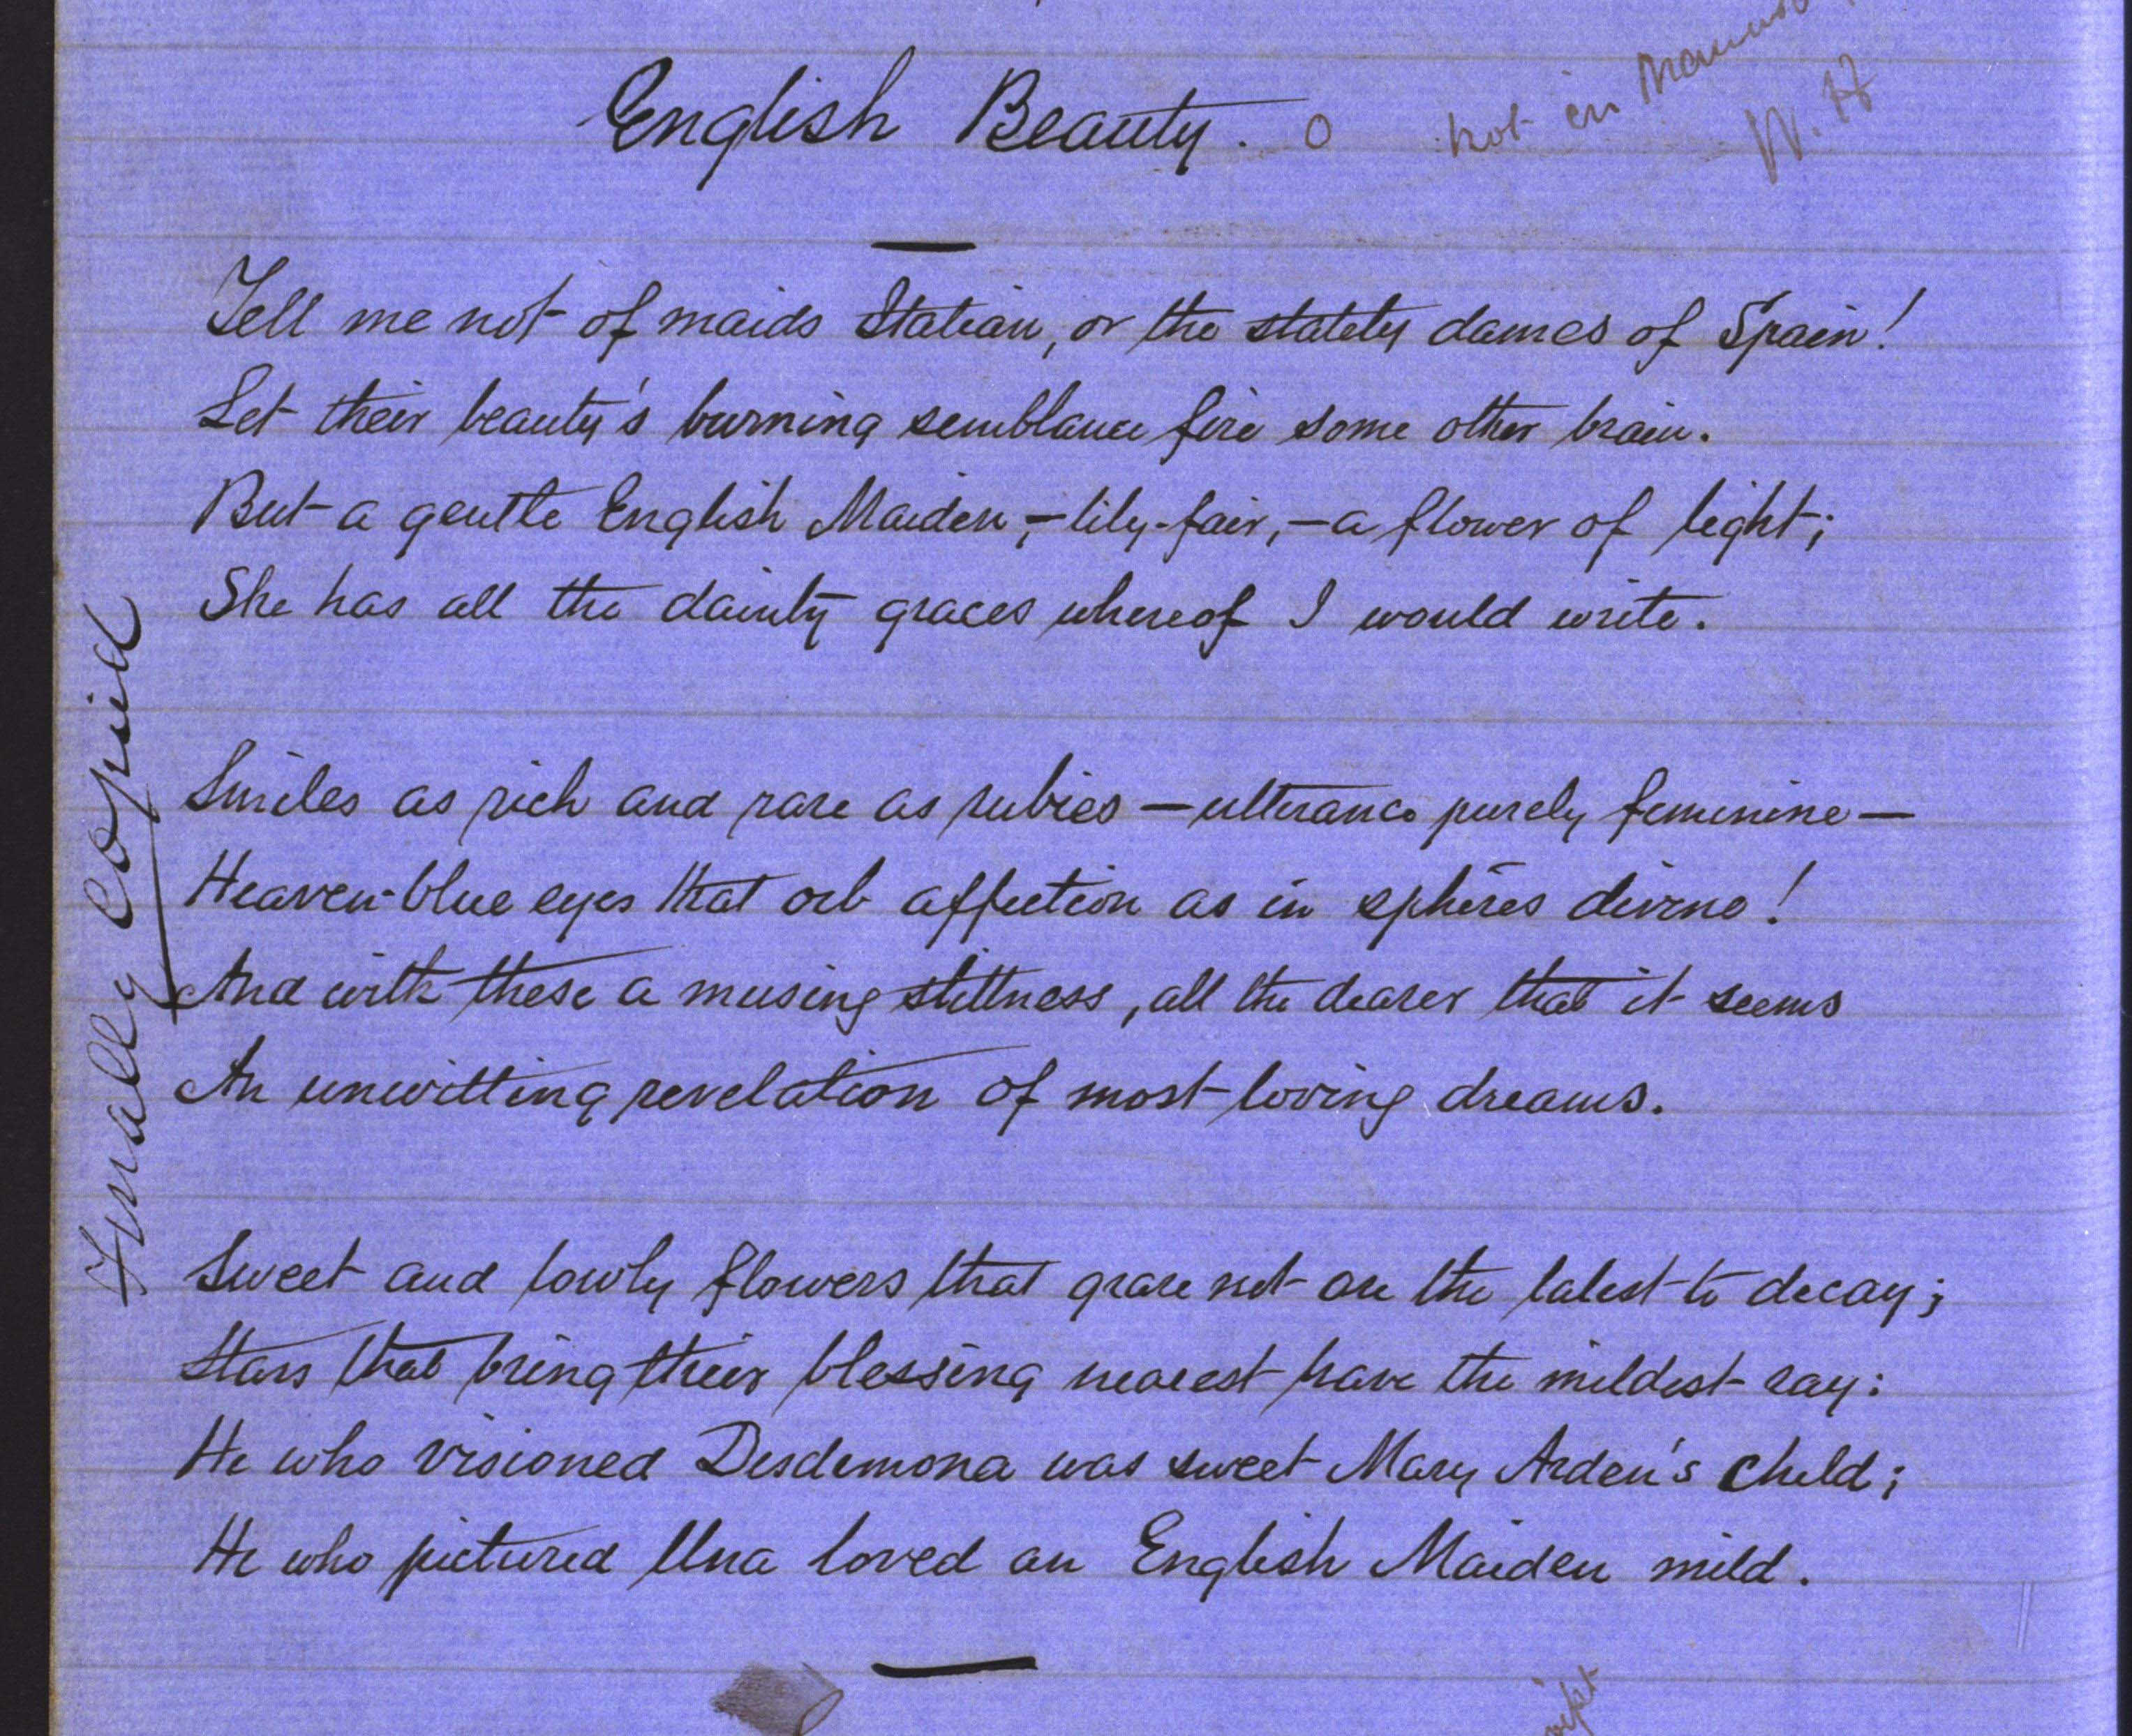 English Beauty. O not in
W. H
Tell me not of maids Italian, or the stately dames of Spain!
Let their beauty's burning semblance fire some other brain.
But a gentle English Maiden, – lily-fair, – a flower of light;
She has all the dainty graces whereof I would write.
Smiles as rich and rare as rubies – utterance purely feminine –
Heaven-blue eyes that orb affection as in spheres divine!
And with these a musing stillness, all the dearer that it seems
An unwitting revelation of most loving dreams.
Sweet and lowly flowers that glare not are the latest to decay;
Stars that bring their blessing nearest have the mildest ray:
He who visioned Desdemona was sweet Mary Arden's child;
He who pictured Una loved an English Maiden mild.
Finally Copied